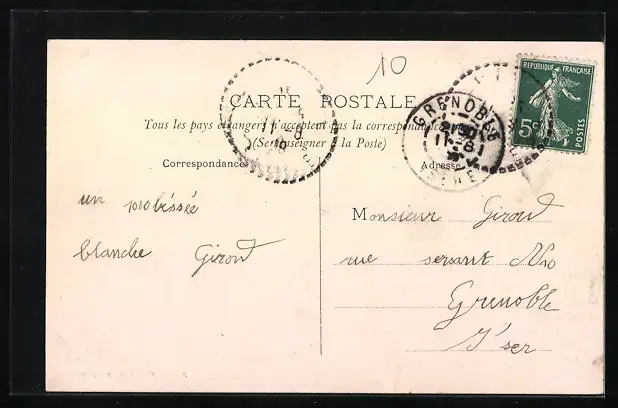 10
CARTE POSTALE
Tous les pays étrangers n'acceptent pas la correspondance
(Se renseigner à la Poste)
Correspondance
Adresse
REPUBLIQUE FRANÇAISE
5c
POSTES
GRENOBLE
11-8
ISERE
un
blanche Giroud
Monsieur Giroud
rue servant No 10
Grenoble
I'ser